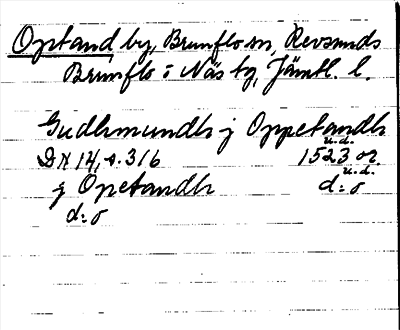 Optand by, Brunflo sn, Revsunds
Brunflo o Näs tg, Jämtl. l.
Gudhmundh j Oppetandh
u.d.
DN 14, s. 316 1523 or.
u.d.
j Opetandh d:o
d:o